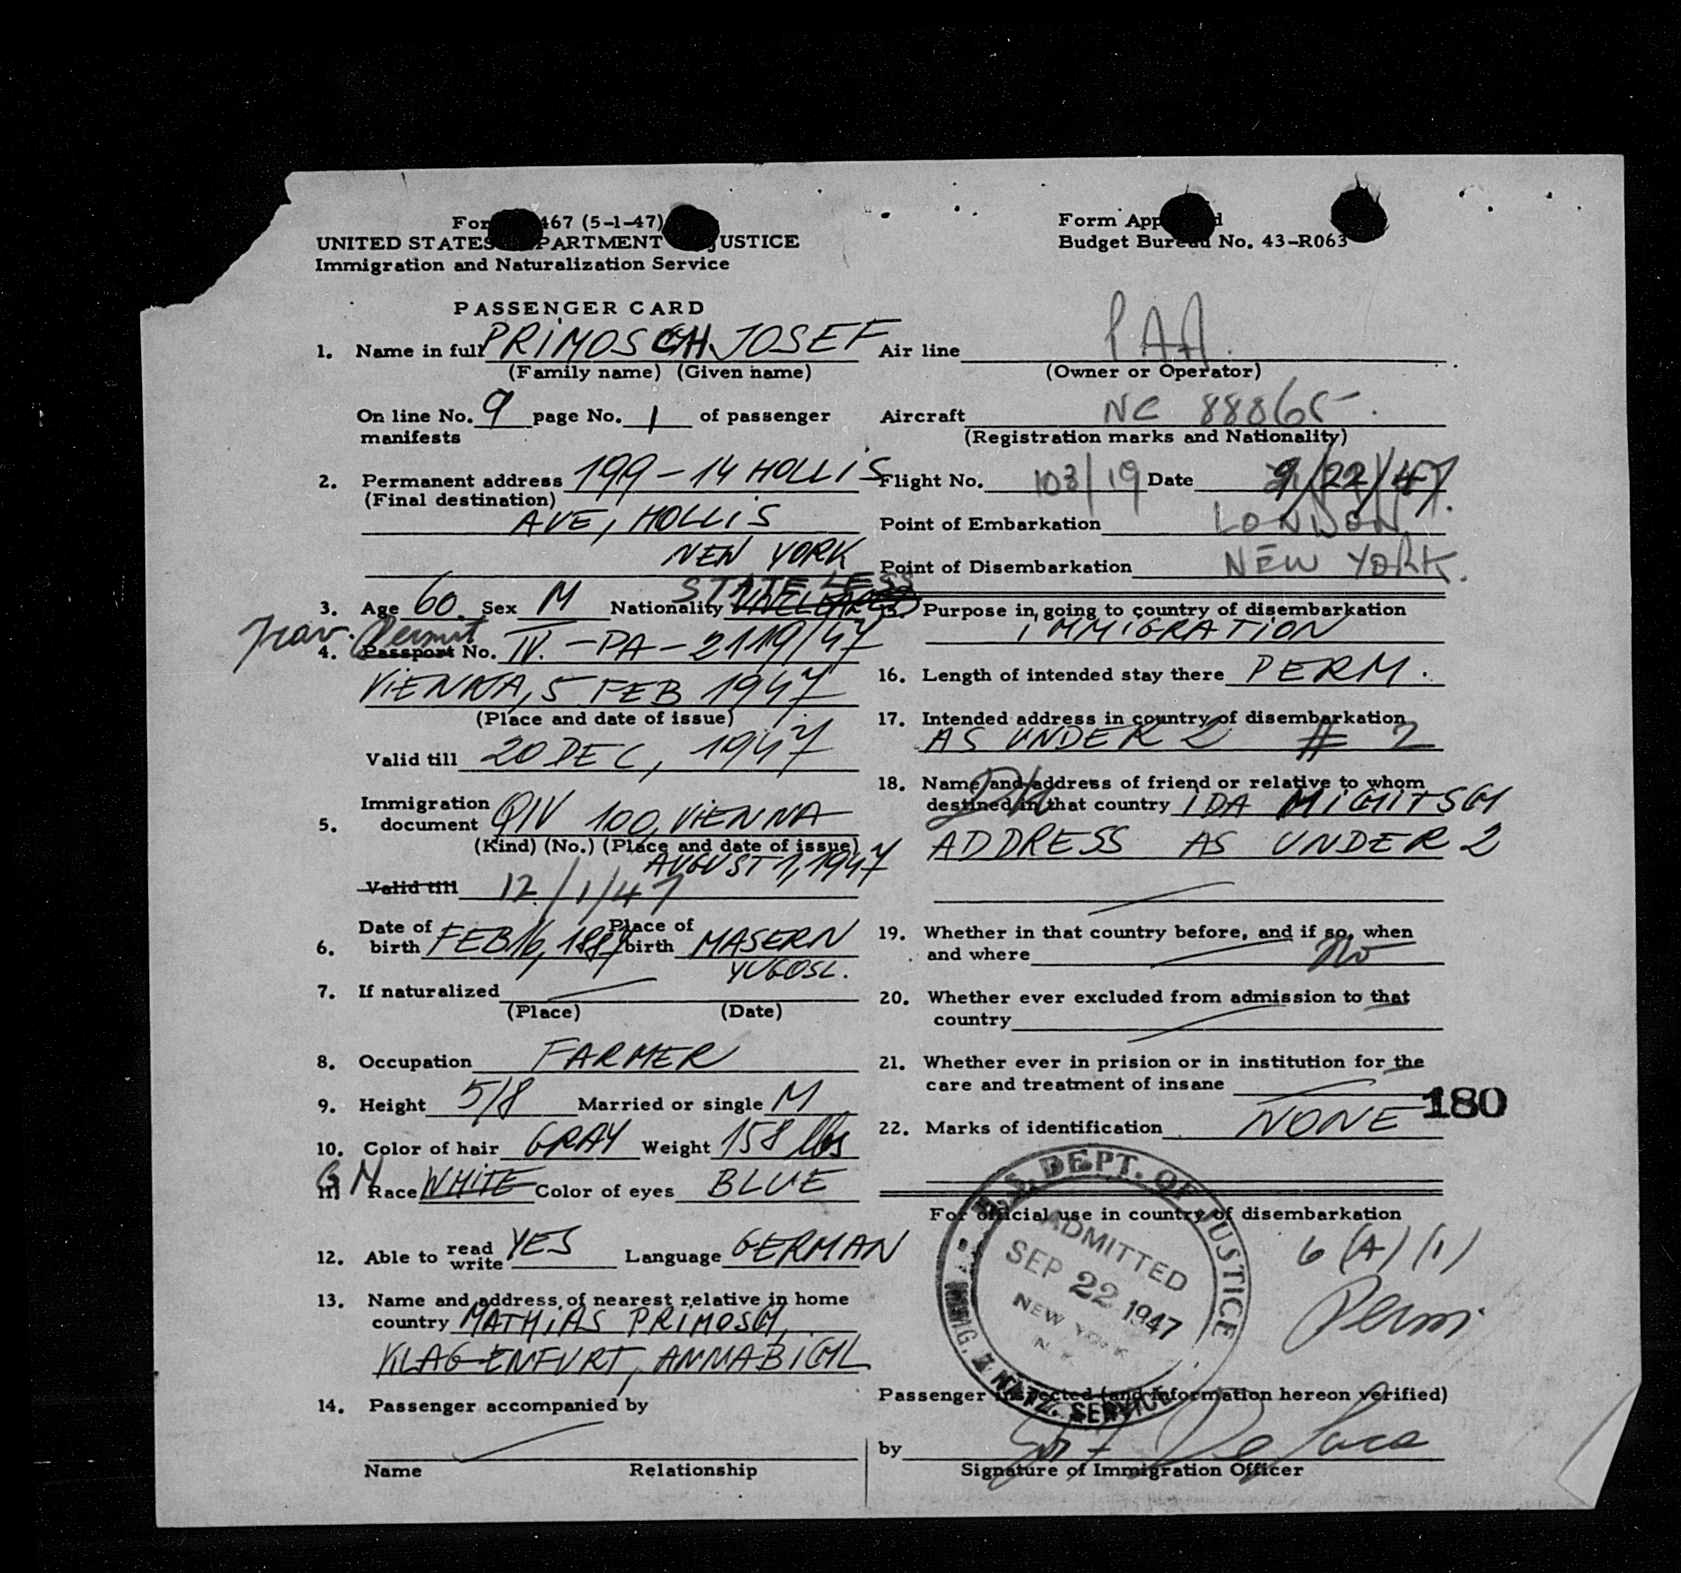 For 467 (5-1-47)
UNITED STATES DEPARTMENT JUSTICE
Immigration and Naturalization Service
PASSENGER CARD
1. Name in full PRIMOSCH JOSEF
(Family name) (Given name)
On line No. 9 page No. 1 of passenger
manifests
2. Permanent address 199-14 HOLLIS
(Final destination)
AVE, HOLLIS
NEW YORK
STATELESS
3. Age 60 Sex M Nationality
Trav. Permit
4. Passport No. IV.-PA-2119/47
VIENNA, 5 FEB 1947
(Place and date of issue)
Valid till 20 DEC, 1947
Immigration
5. document QIV 100, VIENNA
(Kind) (No.) (Place and date of issue)
AUGUST 1, 1947
Valid till 12/1/47
Date of Place of
6. birth FEB 16, 1887 birth MASERN
YUGOSL.
7. If naturalized
(Place) (Date)
8. Occupation FARMER
9. Height 5/8 Married or single M
10. Color of hair GRAY Weight 158 lbs
11. GN Race WHITE Color of eyes BLUE
12. Able to read write YES Language GERMAN
13. Name and address of nearest relative in home
country MATHIAS PRIMOSCH,
KLAGENFURT, ANNABICHL
14. Passenger accompanied by
Name Relationship
Form App d
Budget Bureau No. 43-R063
Air line PAA.
(Owner or Operator)
Aircraft NC 88865.
(Registration marks and Nationality)
Flight No. 103/19 Date 9/22/47.
Point of Embarkation LONDON
Point of Disembarkation NEW YORK.
15. Purpose in going to country of disembarkation
IMMIGRATION
16. Length of intended stay there PERM.
17. Intended address in country of disembarkation
AS UNDER 2 # 2
18. Name and address of friend or relative to whom
destined in that country IDA MICHITSCH
ADDRESS AS UNDER 2
19. Whether in that country before, and if so, when
and where No
20. Whether ever excluded from admission to that
country
21. Whether ever in prision or in institution for the
care and treatment of insane
180
22. Marks of identification NONE
For official use in country of disembarkation
U.S. DEPT. OF JUSTICE
ADMITTED
SEP 22 1947
NEW YORK
N.Y.
IMMIG. & NATZ. SERVICE
6 (A) (1)
Perm.
Passenger inspected (and information hereon verified)
by
Signature of Immigration Officer